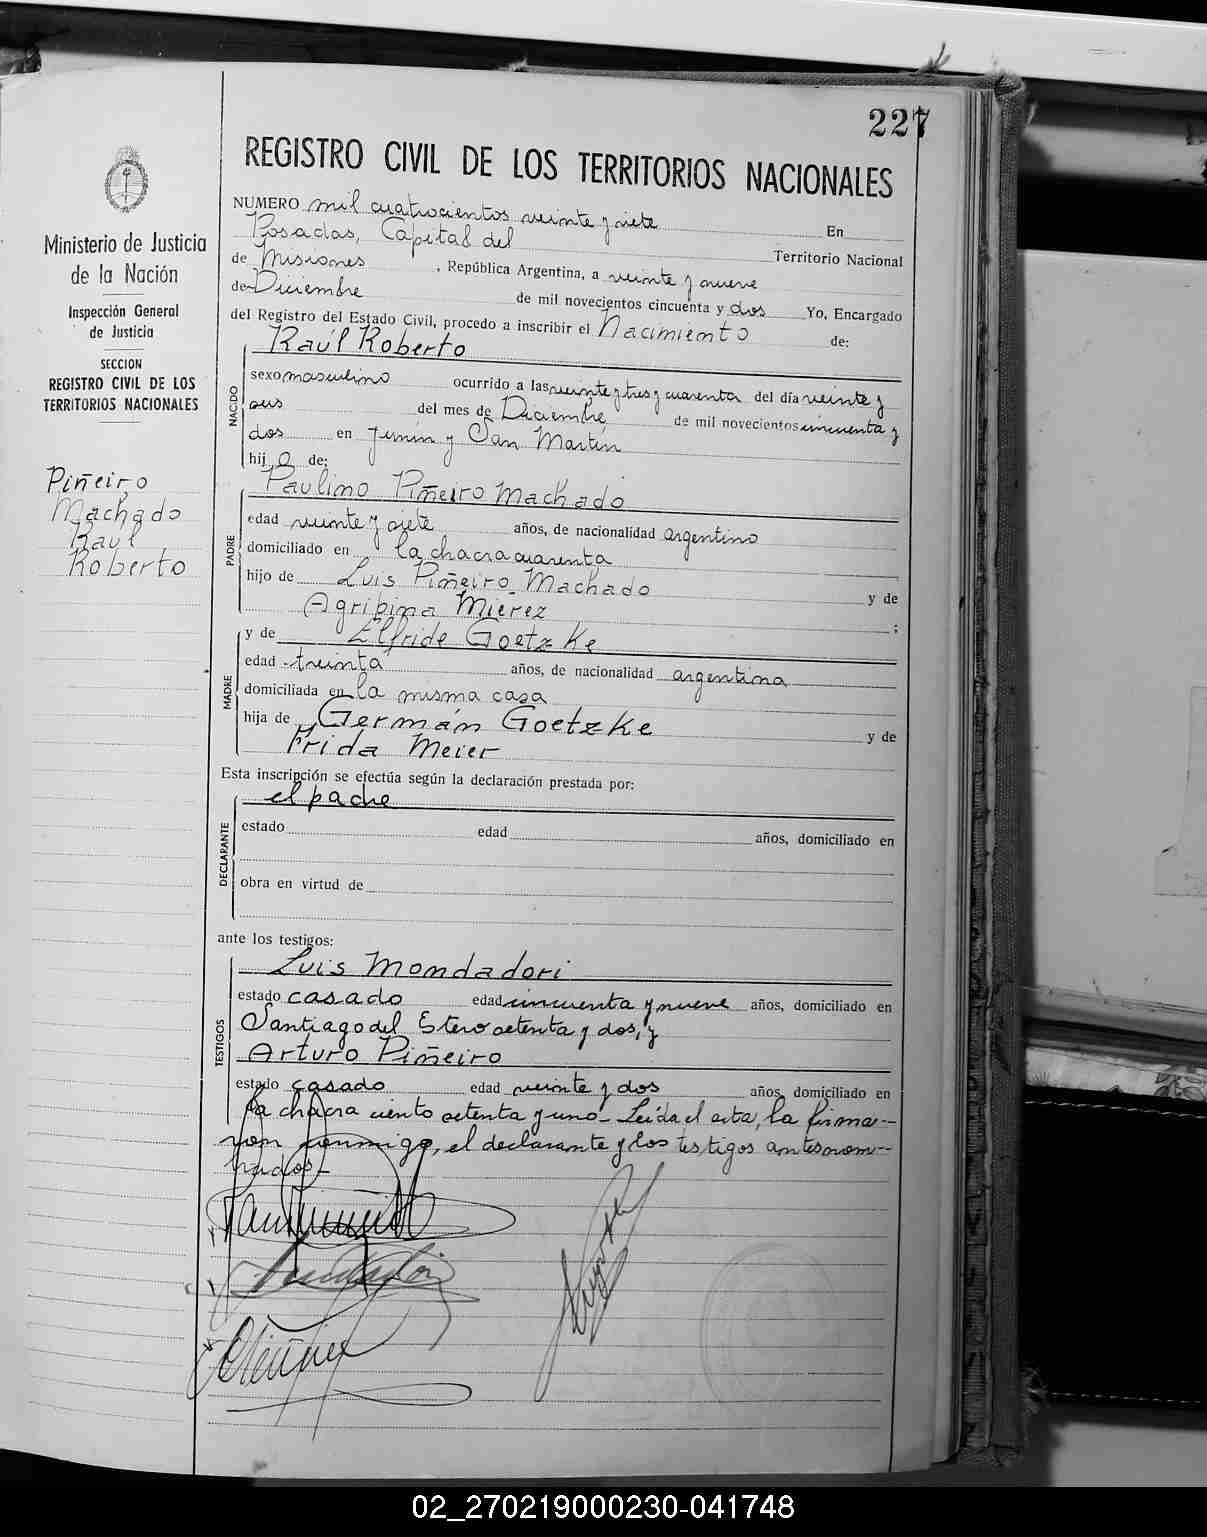 227
REGISTRO CIVIL DE LOS TERRITORIOS NACIONALES
Ministerio de Justicia
de la Nación
Inspección General
de Justicia
SECCION
REGISTRO CIVIL DE LOS
TERRITORIOS NACIONALES
Piñeiro
Machado
Raúl
Roberto
NUMERO mil cuatrocientos veinte y siete En
Posadas, Capital del Territorio Nacional
de Misiones, República Argentina, a veinte y nueve
de Diciembre de mil novecientos cincuenta y dos Yo, Encargado
del Registro del Estado Civil, procedo a inscribir el Nacimiento de:
NACIDO
Raúl Roberto
sexo masculino ocurrido a las veinte y tres y cuarenta del día veinte y
seis del mes de Diciembre de mil novecientos cincuenta y
dos en Junín y San Martín
hijo de:
PADRE
Paulino Piñeiro Machado
edad veinte y siete años, de nacionalidad argentino
domiciliado en la chacra cuarenta
hijo de Luis Piñeiro Machado y de
Agripina Mierez ;
MADRE
y de Elfride Goetzke
edad treinta años, de nacionalidad argentina
domiciliada en la misma casa
hija de Germán Goetzke y de
Frida Meier
Esta inscripción se efectúa según la declaración prestada por:
DECLARANTE
el padre
estado edad años, domiciliado en
obra en virtud de
ante los testigos:
TESTIGOS
Luis Mondadori
estado casado edad cincuenta y nueve años, domiciliado en
Santiago del Estero setenta y dos, y
Arturo Piñeiro
estado casado edad veinte y dos años, domiciliado en
la chacra ciento setenta y uno- Leída el acta, la firma--
ron conmigo, el declarante y los testigos antesnom--
brados-
02_270219000230-041748